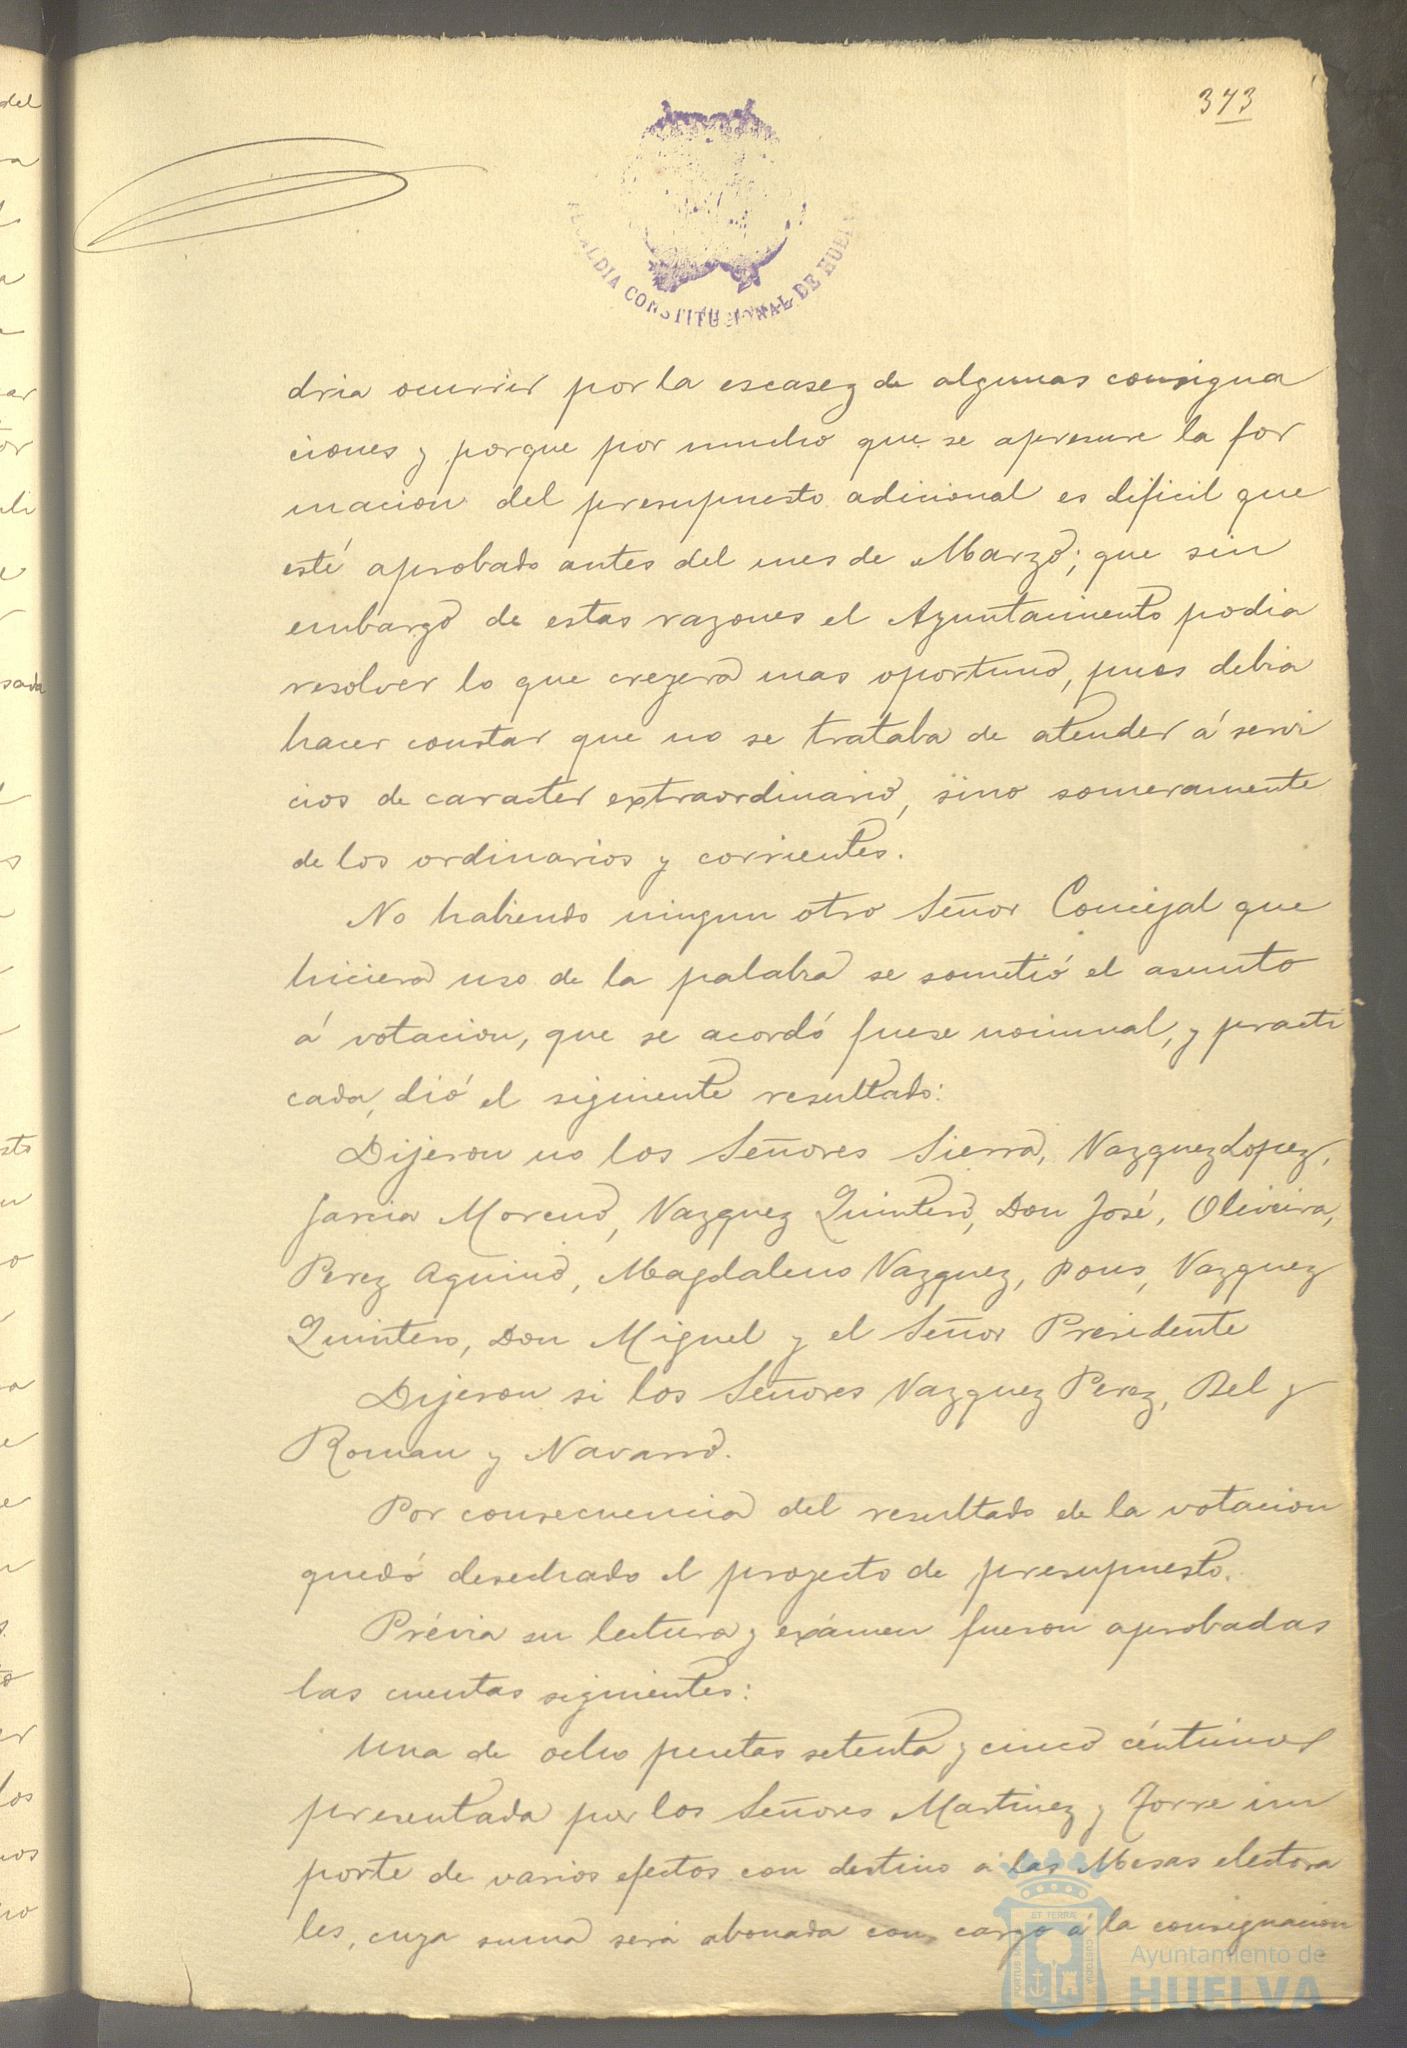 373
ALCALDIA CONSTITUCIONAL DE HUEL
dria ocurrir por la escasez de algunas consigna
ciones y porque por mucho que se apresure la for
macion del presupuesto adicional es dificil que
esté aprobado antes del mes de Marzo; que sin
embargo de estas razones el Ayuntamiento podia
resolver lo que creyera mas oportuno, pues debia
hacer constar que no se trataba de atender á servi
cios de caracter extraordinario, sino someramente
de los ordinarios y corrientes.
No habiendo ningun otro Señor Concejal que
hiciera uso de la palabra se sometió el asunto
á votacion, que se acordó fuese nominal, y practi
cada, dió el siguiente resultado:
Dijeron no los Señores Sierra, Vazquez Lopez,
Garcia Moreno, Vazquez Quintero, Don José, Oliveira,
Perez Aquino, Magdaleno Vazquez, Pons, Vazquez
Quintero, Don Miguel y el Señor Presidente
Dijeron si los Señores Vazquez Perez, Bel y
Roman y Navarro.
Por consecuencia del resultado de la votacion
quedó desechado el proyecto de presupuesto.
Prévia su lectura y exámen fueron aprobadas
las cuentas siguientes:
Una de ocho pesetas setenta y cinco céntimos
presentada por los Señores Martinez y Torre im
porte de varios efectos con destino á las Mesas electora
les, cuya suma será abonada con cargo á la consignacion
PORTUS MARIS ET TERRÆ CUSTODIA
Ayuntamiento de
HUELVA